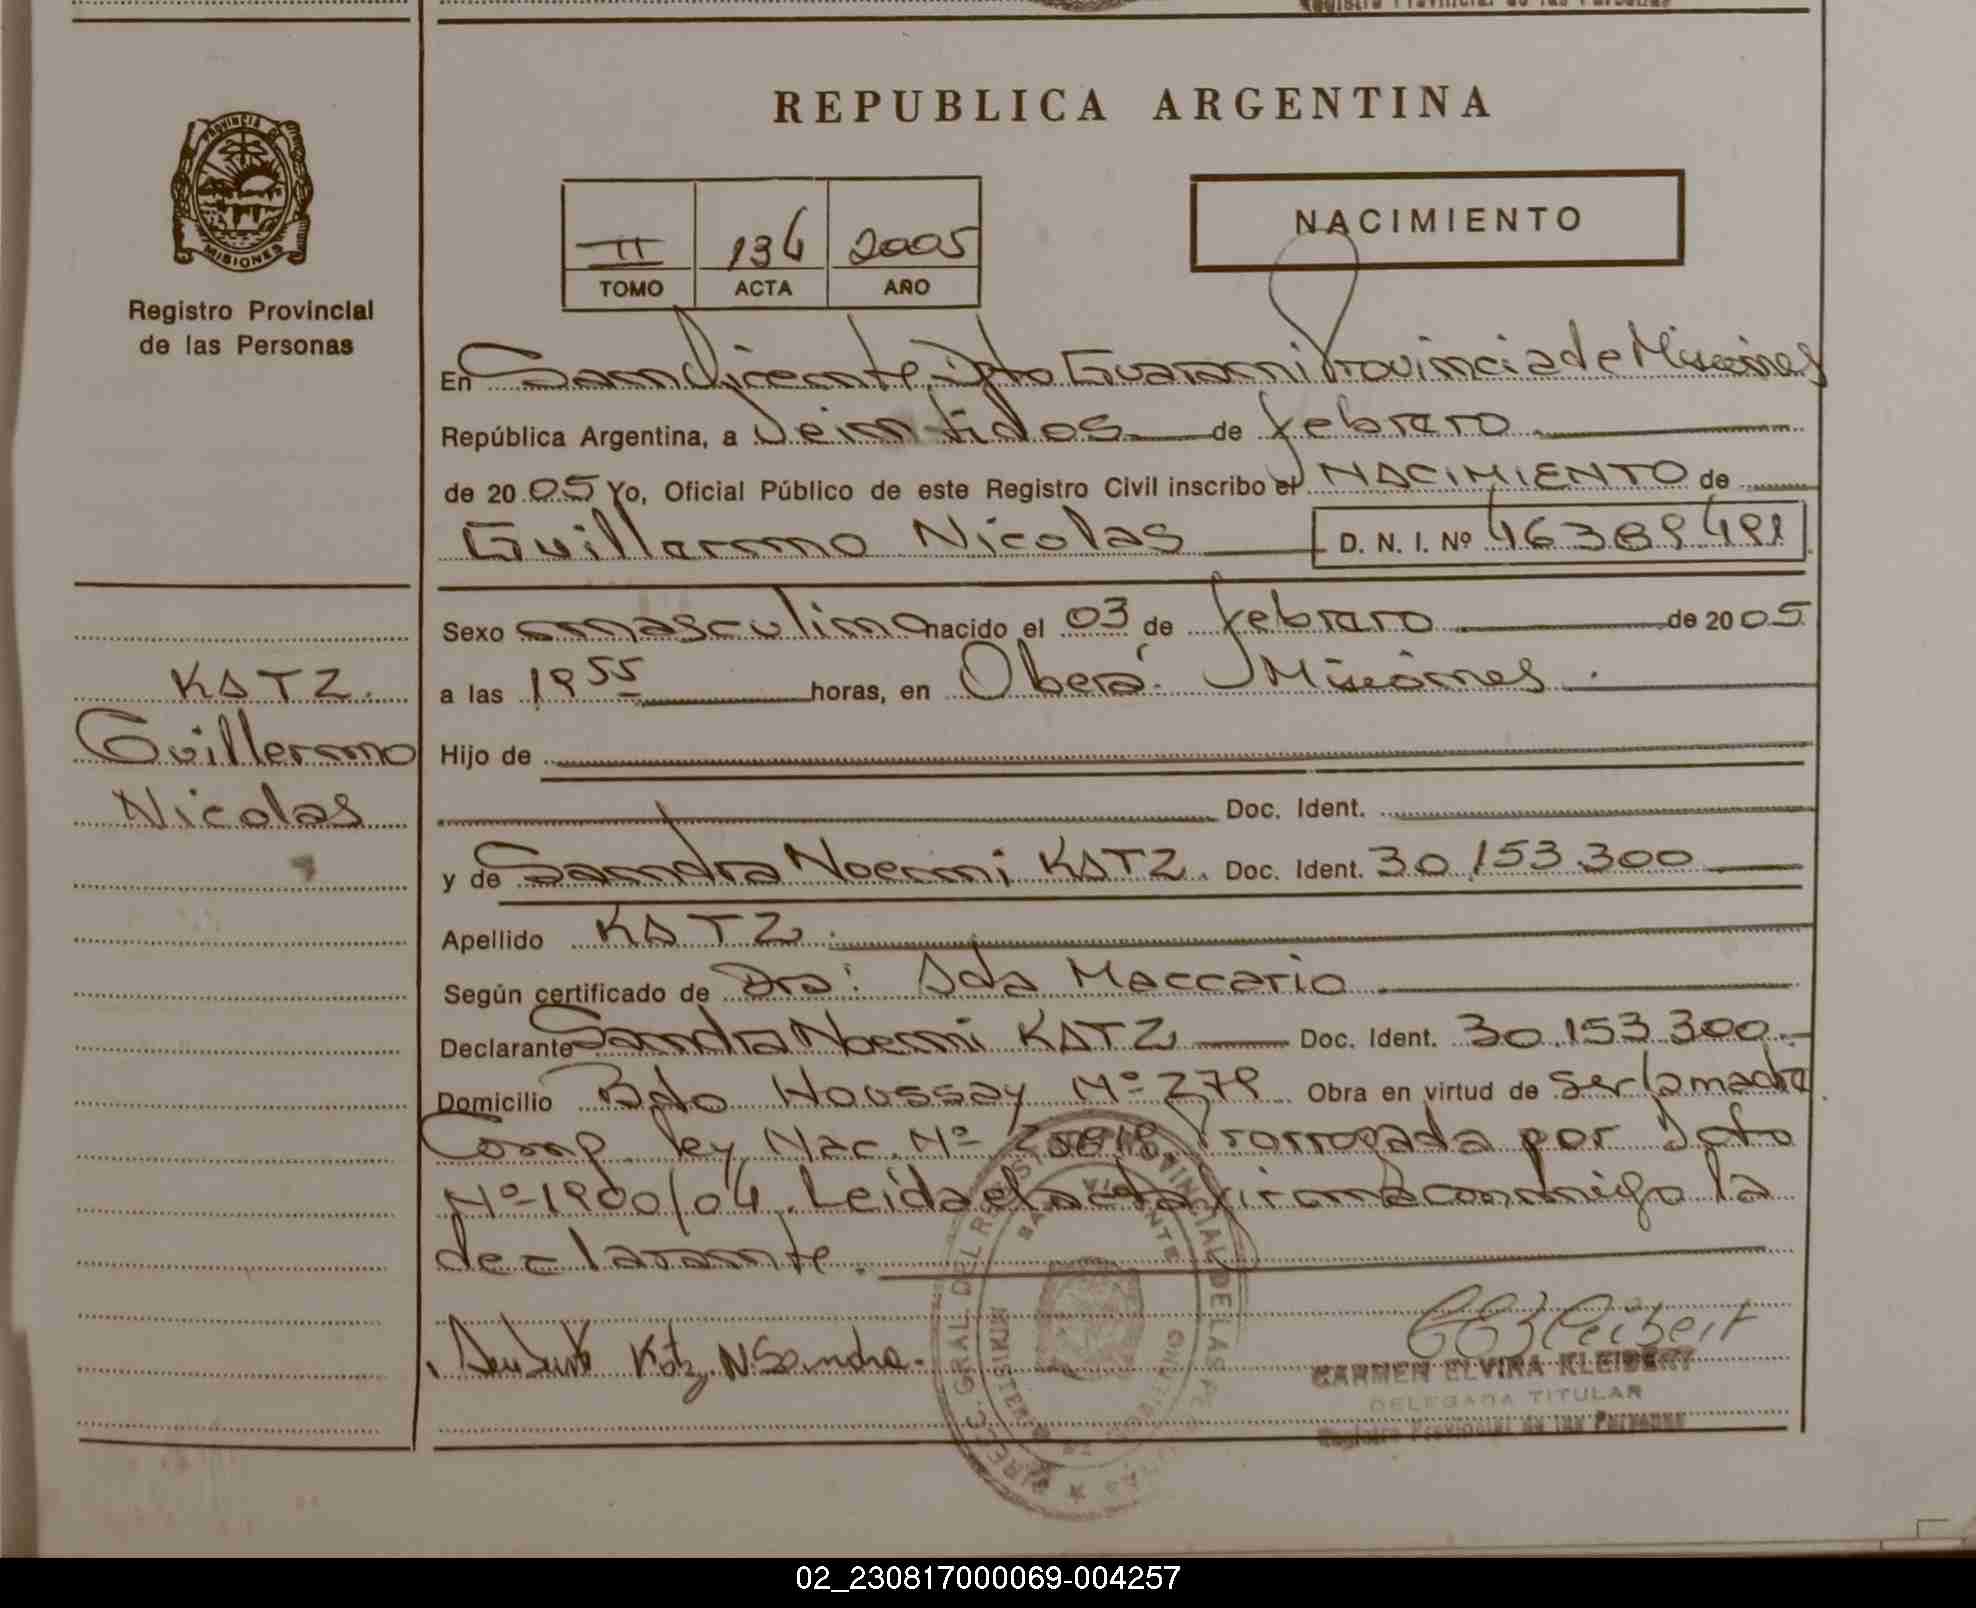 REPUBLICA ARGENTINA
PROVINCIA DE
MISIONES
Registro Provincial
de las Personas
II 134 2005
TOMO ACTA AÑO
NACIMIENTO
En San Vicente, Dpto Guarani Provincia de Misiones
República Argentina, a Veintidos de febrero
de 2005 Yo, Oficial Público de este Registro Civil inscribo el NACIMIENTO de
Guillermo Nicolas D. N. I. Nº 46389491
Sexo masculino nacido el 03 de febrero de 2005
a las 19 55 horas, en Oberá. Misiones.
KATZ.
Guillermo
Nicolas
Hijo de
Doc. Ident.
y de Sandra Noemi KATZ. Doc. Ident. 30.153.300
Apellido KATZ.
Según certificado de Dra: Ada Maccario
Declarante Sandra Noemi KATZ Doc. Ident. 30.153.300.-
Domicilio Bdo Houssay Nº 279 Obra en virtud de ser la madre
Comp. ley Nac. Nº Prorrogada por Dcto
Nº 1900/04. Leida el acta firma conmigo la
declarante.
Katz N Sandra.
CARMEN ELVIRA KLEIBERT
DELEGADA TITULAR
Registro Provincial de las Personas
02_230817000069-004257